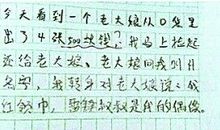 今天看到一个老大娘从口袋里
出了4张500块钱?我马上捡起
还给老大娘、老大娘问我叫什
名字,我转身对老大娘说:我
红领巾,雷锋叔叔是我的偶像。